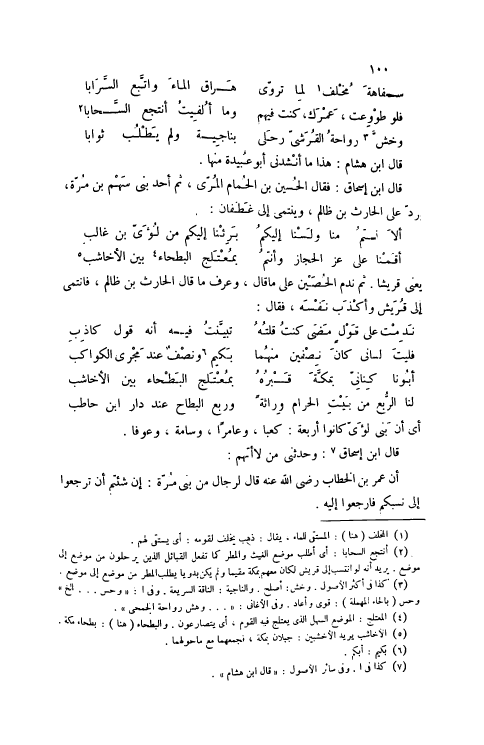 ١٠٠
سفاهة مُخْلف١ لما تروّى هَراق الماءَ واتَّبع السَّرابا
فلو طُووِعت، عَمْرَك، كنت فيهم وما أُلفيتُ أنتجع السَّحابا٢
وخشّ٣ رواحة القُرشىّ رحلى بناجية ولم يَطْلُب ثوابا
قال ابن هشام : هذا ما أنشدنى أبو عُبيدة منها .
قال ابن إسحاق : فقال الحُصين بن الحُمام المُرّى ، ثم أحد بنى سَهْم بن مُرّة،
يردّ على الحارث بن ظالم ، وينتمى إلى غَطفان :
ألاَ لستمُ منا ولسْنا إليكمُ بَرِئْنا إليكم من لُؤَىّ بن غالب
أقمْنا على عز الحجاز وأنتمُ بمُعْتَلَج البطحاء٤ بين الأخاشب٥
يعنى قريشا . ثم ندم الحُصَين على ماقال ، وعرف ما قال الحارث بن ظالم ، فانتمى
إلى قُرَيش وأكْذَب نَفْسَه ، فقال :
نَدِمْتُ على قَوْلٍ مَضَى كنتُ قلتُهُ تبيَّنْتُ فيه أنه قول كاذِبِ
فليتَ لسانى كانَ نِصْفين منهما بَكِيم٦ ونصْفٌ عند مَجْرى الكواكب
أبُونا كِنانىّ بمكَّةَ قَبْرُهُ بمُعْتَلج البَطْحاء بين الأخاشب
لنا الرُّبع من بَيْتِ الحرام وِراثةً وربع البِطاح عند دار ابن حاطب
أى أن بَنى لؤىّ كانوا أربعة : كعبا ، وعامرًا ، وسامة ، وعوفا .
قال ابن إسحاق٧ : وحدثنى من لاأتَّهم :
أن عمر بن الخطاب رضى الله عنه قال لرجال من بنى مُرّة : إن شئتم أن ترجعوا
إلى نسبكم فارجعوا إليه .
(١) المخلف (هنا) : المستقى للماء . يقال : ذهب يخلف لقومه : أى يستقى لهم .
(٢) أنتجع السحابا : أى أطلب موضع الغيث والمطر كما تفعل القبائل الذين يرحلون من موضع إلى
موضع . يريد أنه لو انتسب إلى قريش لكان معهم بمكة مقيما ولم يكن بدويا يطلب المطر من موضع إلى موضع .
(٣) كذا فى أكثر الأصول . وخش : أصلح . والناجية : الناقة السريعة . وفى ا : « وحس ... الخ »
وحس (بالحاء المهملة) : قوى وأعاد . وفى الأغانى : « ... وهش رواحة الجمحى » .
(٤) المعتلج : الموضع السهل الذى يعتلج فيه القوم ، أى يتصارعون . والبطحاء (هنا) : بطحاء مكة .
(٥) الأخاشب يريد الأخشبين : جبلان بمكة ، فجمعهما مع ماحولهما .
(٦) بكيم : أبكم .
(٧) كذا فى ا . وفى سائر الأصول : « قال ابن هشام » .